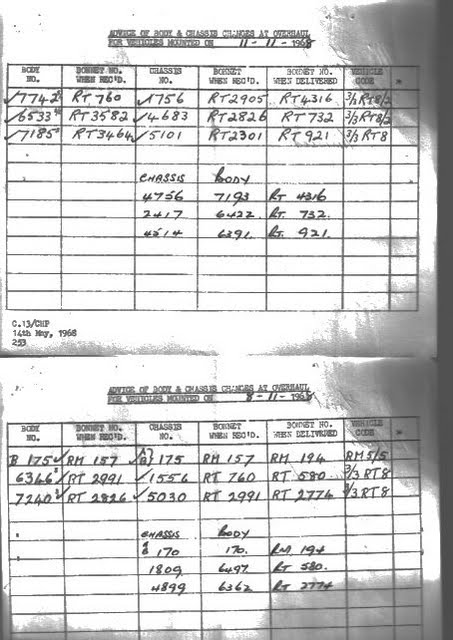 ADVICE OF BODY & CHASSIS CHANGES AT OVERHAUL
FOR VEHICLES MOUNTED ON 11-11-1968
BODY NO. BONNET NO. WHEN REC'D. CHASSIS NO. BONNET WHEN REC'D. BONNET NO. WHEN DELIVERED VEHICLE CODE
✓7742 RT 760 ✓1756 RT2905 RT4316 3/3 RT8/2
✓6533 RT 3582 ✓4683 RT2826 RT 732 3/3 RT8/2
✓7185 RT3464 ✓5101 RT2301 RT 921 3/3 RT8
CHASSIS BODY
4756 7193 RT 4316
2417 6422. RT. 732.
4514 6391. RT. 921.
C.13/CHP
14th May, 1968
253
ADVICE OF BODY & CHASSIS CHANGES AT OVERHAUL
FOR VEHICLES MOUNTED ON 8-11-1968
BODY NO. BONNET NO. WHEN REC'D. CHASSIS NO. BONNET WHEN REC'D. BONNET NO. WHEN DELIVERED VEHICLE CODE
B 175 ✓ RM 157 ✓ A B} 175 RM 157 RM 194 RM 5/5
6346 ✓ RT 2991 ✓ 1556 RT 760 RT 580 3/3 RT8
7240 ✓ RT 2826 ✓ 5030 RT 2991 RT 2774 3/3 RT8
CHASSIS BODY
170 170. RM 194
1809 6497. RT 580.
4899 6362 RT 2774